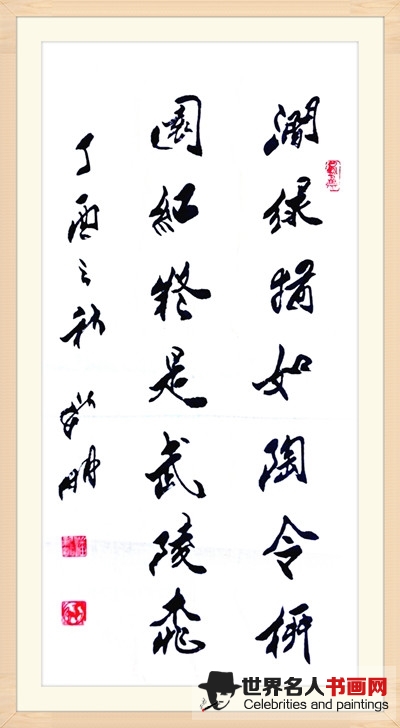 绿猶如陶令柳
園紅疑是武陵
丁酉之秋
世界名人书画网
Celebrities and paintings